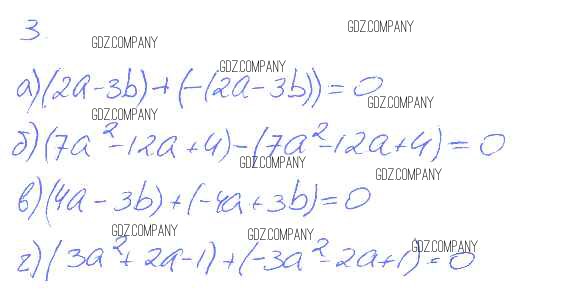 3.
GDZ.COMPANY
GDZ.COMPANY
GDZ.COMPANY
а) (2a - 3b) + (-(2a - 3b)) = 0
GDZ.COMPANY
GDZ.COMPANY
б) (7a² - 12a + 4) - (7a² - 12a + 4) = 0
GDZ.COMPANY
GDZ.COMPANY
в) (4a - 3b) + (-4a + 3b) = 0
GDZ.COMPANY
GDZ.COMPANY
GDZ.COMPANY
г) (3a² + 2a - 1) + (-3a² - 2a + 1) = 0